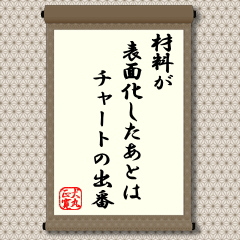 材料が
表面化したあとは
チャートの出番